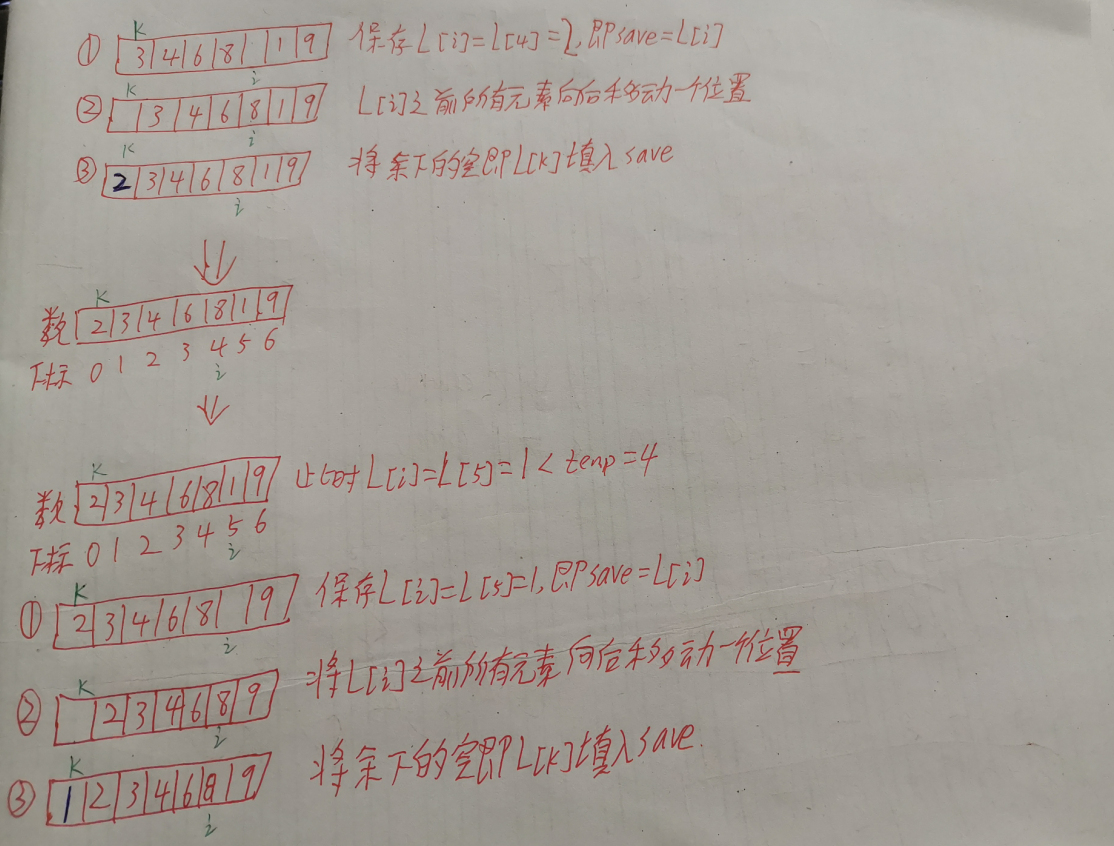 K
① 3 4 6 8 1 9 保存L[i]=L[4]=2,即save=L[i]
i
K
② 3 4 6 8 1 9 L[i]之前的所有元素向后移动一个位置
i
K
③ 2 3 4 6 8 1 9 将余下的空即L[K]填入save
i
K
数 2 3 4 6 8 1 9
下标 0 1 2 3 4 5 6
i
K
数 2 3 4 6 8 1 9 此时L[i]=L[5]=1<temp=4
下标 0 1 2 3 4 5 6
i
K
① 2 3 4 6 8 9 保存L[i]=L[5]=1,即save=L[i]
i
K
② 2 3 4 6 8 9 将L[i]之前所有元素向后移动一个位置
i
K
③ 1 2 3 4 6 8 9 将余下的空即L[K]填入save.
i